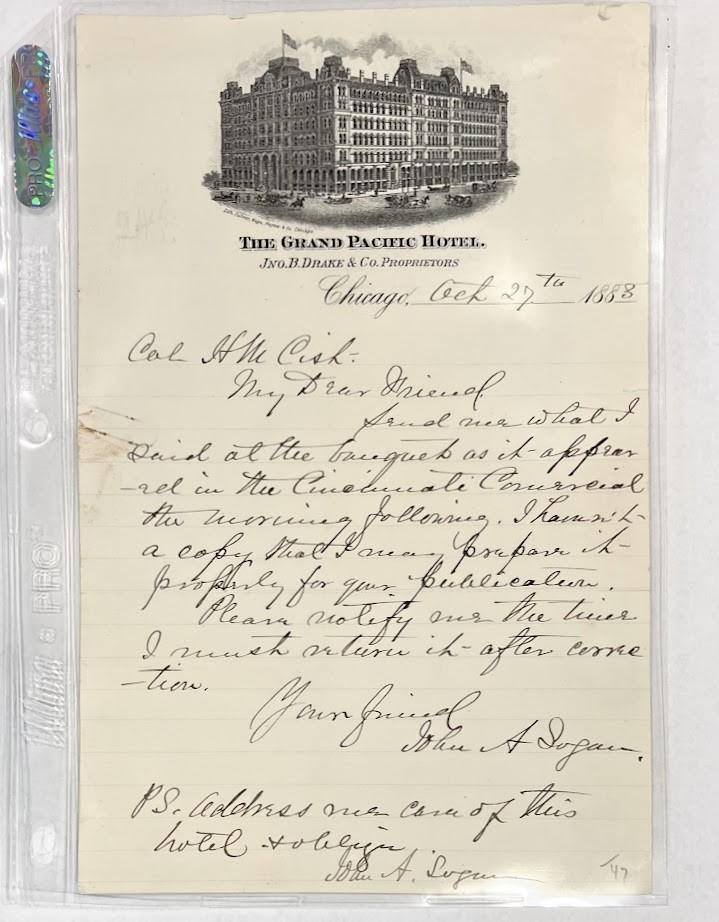 THE GRAND PACIFIC HOTEL.
JNO. B. DRAKE & CO. PROPRIETORS
Chicago, Oct 27th 1883
Col H M Cist-
My Dear Friend
Send me what I
said at the banquet as it appear
-ed in the Cincinnati Comercial
the morning following. I havn't
a copy that I may prepare it
properly for your publication.
Please notify me the time
I must return it after correc
-tion.
Your friend
John A Logan.
PS. Address me care of this
hotel & oblige
John A. Logan
/47